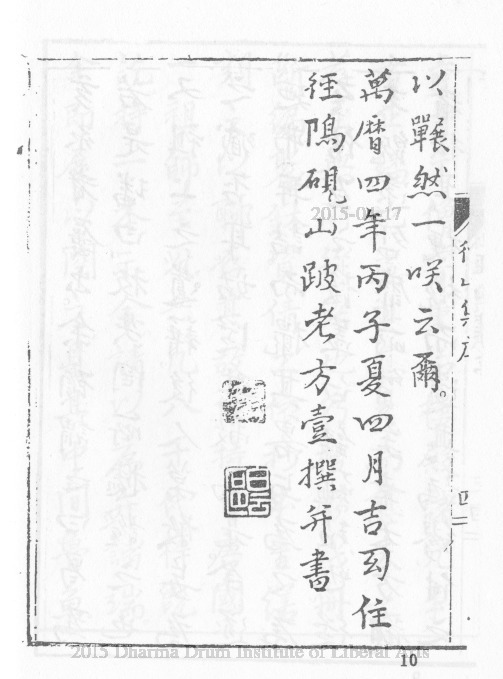 以囅然一咲云爾。
萬曆四年丙子夏四月吉住
徑隖硯山跛老方壹撰并書
2015-04-17
2015 Dharma Drum Institute of Liberal Arts
10